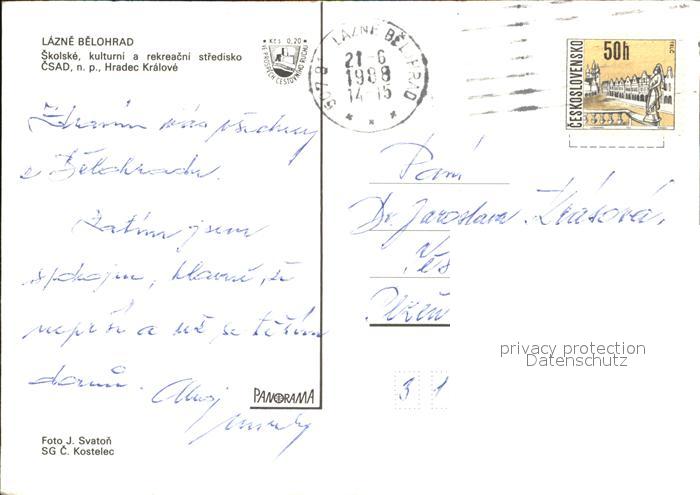 LÁZNĚ BĚLOHRAD
Školské, kulturní a rekreační středisko
ČSAD, n. p., Hradec Králové
Kčs 0,20
VE PROSPĚCH CESTOVNÍHO RUCHU
LÁZNĚ BĚLOHRAD
21-6
1988
14-15
ČESKOSLOVENSKO
50h
Zdravím vás všechny
z Bělohradu.
Zatím jsem
spokojen, hlavně, že
neprší a už se těším
domů. Ahoj
PANORAMA
Foto J. Svatoň
SG Č. Kostelec
Paní
Dr. Jaroslava Krásová,
Plzeň
privacy protection
Datenschutz
3 1